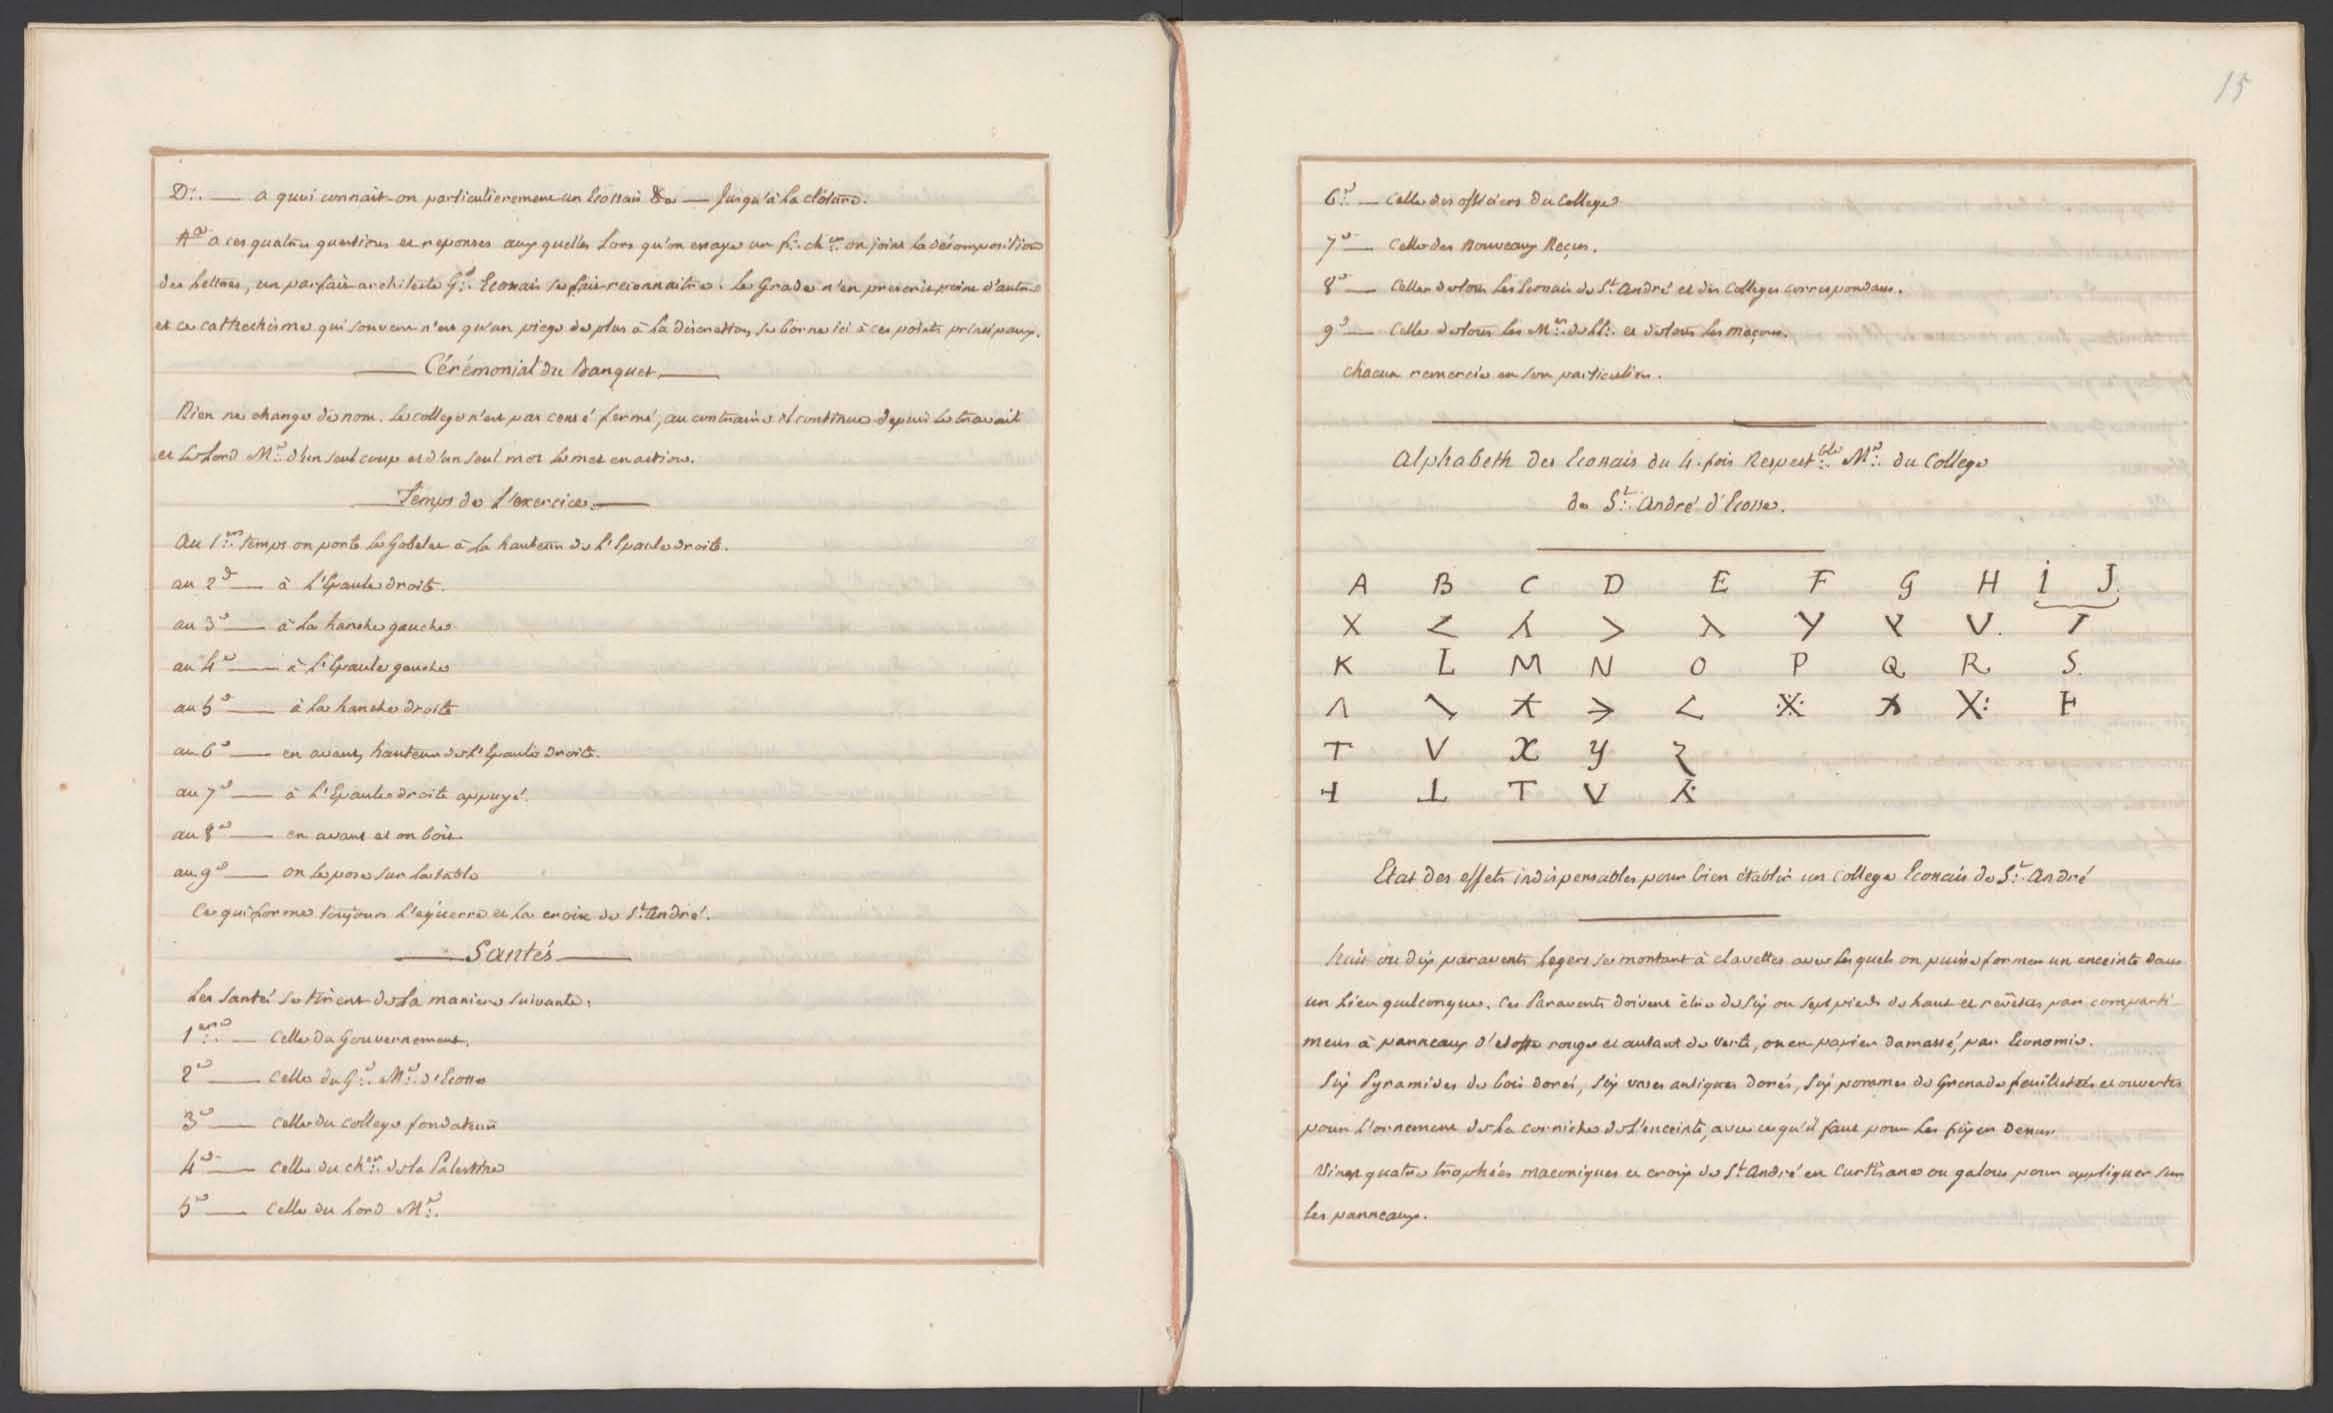 D∴ — a quoi connait-on particulierement un Ecossais &a — Jusqu'à la clôture.
Aa a ces quatre questions et reponses aux quelles Lors qu'on essaye un f∴ ch.er on joint la décomposition
des Lettres, un parfait architecte G.d∴ Ecossais se fait reconnaitre. Le Grade n'en prescrit point d'autre
et ce cathechisme qui souvent n'est qu'un piege de plus à la discretion, se borne ici à ces points principaux.
— Cérémonial du Banquet —
Rien ne change de nom. Le college n'est pas censé fermé, au contraire il continue depuis le travail
et le Lord M.e∴ d'un seul coup et d'un seul mot le met en action.
— Temps de l'exercice —
Au 1.er temps on porte le Gobelet à la hauteur de l'Epaule droite.
au 2.d — à l'Epaule droite.
au 3.e — à la hanche gauche
au 4.e — à l'Epaule gauche
au 5.e — à la hanche droite
au 6.e — en avant, hauteur de l'Epaule droite.
au 7.e — à l'Epaule droite appuyé.
au 8.e — en avant et on boit
au 9.e — on le pose sur la table
Ce qui forme toujours l'équerre et la croix de St. André.
— Santés —
Les Santés se tirent de la maniere suivante.
1.ere — Celle du Gouvernement.
2.e — Celle du G.d∴ M.e∴ d'Ecosse
3.e — Celle du college fondateur
4.e — Celle du ch.er∴ de la Palestine
5.e — Celle du Lord M.e∴
15
6.e — Celle des officiers du College
7.e — Celle des Nouveaux Reçus.
8.e — Celle de tous les Ecossais de St. André et des Colleges correspondans.
9.e — Celle de tous les M.es∴ de LL∴ et de tous les maçons.
chacun remercie en son particulier.
Alphabeth des Ecossais du 4. fois Respect.ble∴ M.e∴ du College
de St. André d'Ecosse.
A B C D E F G H I J
K L M N O P Q R S
T V X Y Z
Etat des effets indispensables pour bien établir un college Ecossais de St. André
huit ou dix paravents legers se montant à clavettes avec lesquels on puisse former un enceinte dans
un Lieu quelconque. Ces Paravents doivent être de six ou sept pieds de haut et revêtus par comparti-
mens à panneaux d'etoffe rouge et autant de verte, ou en papier damassé, par Economie.
Six Pyramides de bois dorés, six vases antiques dorés, six pommes de Grenade feuilletées et ouvertes
pour l'ornement de la corniche de l'enceinte, avec ce qu'il faut pour les fixer dessus
Vingt quatre trophées maconiques et croix de St. André en ou galons pour appliquer sur
les panneaux.